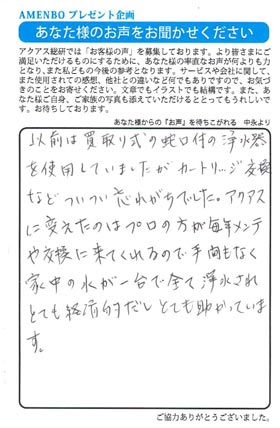 AMENBO プレゼント企画
あなた様のお声をお聞かせください
アクアス総研では「お客様の声」を募集しております。より皆さまにご
満足いただけるものにするために、あなた様の率直なお声が何よりも力
となり、また私どもの今後の参考となります。サービスや会社に関して、ま
た使用されての感想、他社との違いなど何でもありですので、お気づ
きのことをお寄せください。文章でもイラストでも結構です。また、あ
なた様ご自身、ご家族の写真も添えていただけるととってもうれしいで
す。お待ちしております。
あなた様からの『お声』を待ちこがれる 中永より
以前は買取り式の蛇口付の浄水器
を使用していましたがカートリッジ交換
などついつい忘れがちでした。アクアス
に変えたのはプロの方が毎年メンテ
や交換に来てくれるので手間もなく
家中の水が一台で全て浄水され
とても経済的だしとても助かっていま
す。
ご協力ありがとうございました。